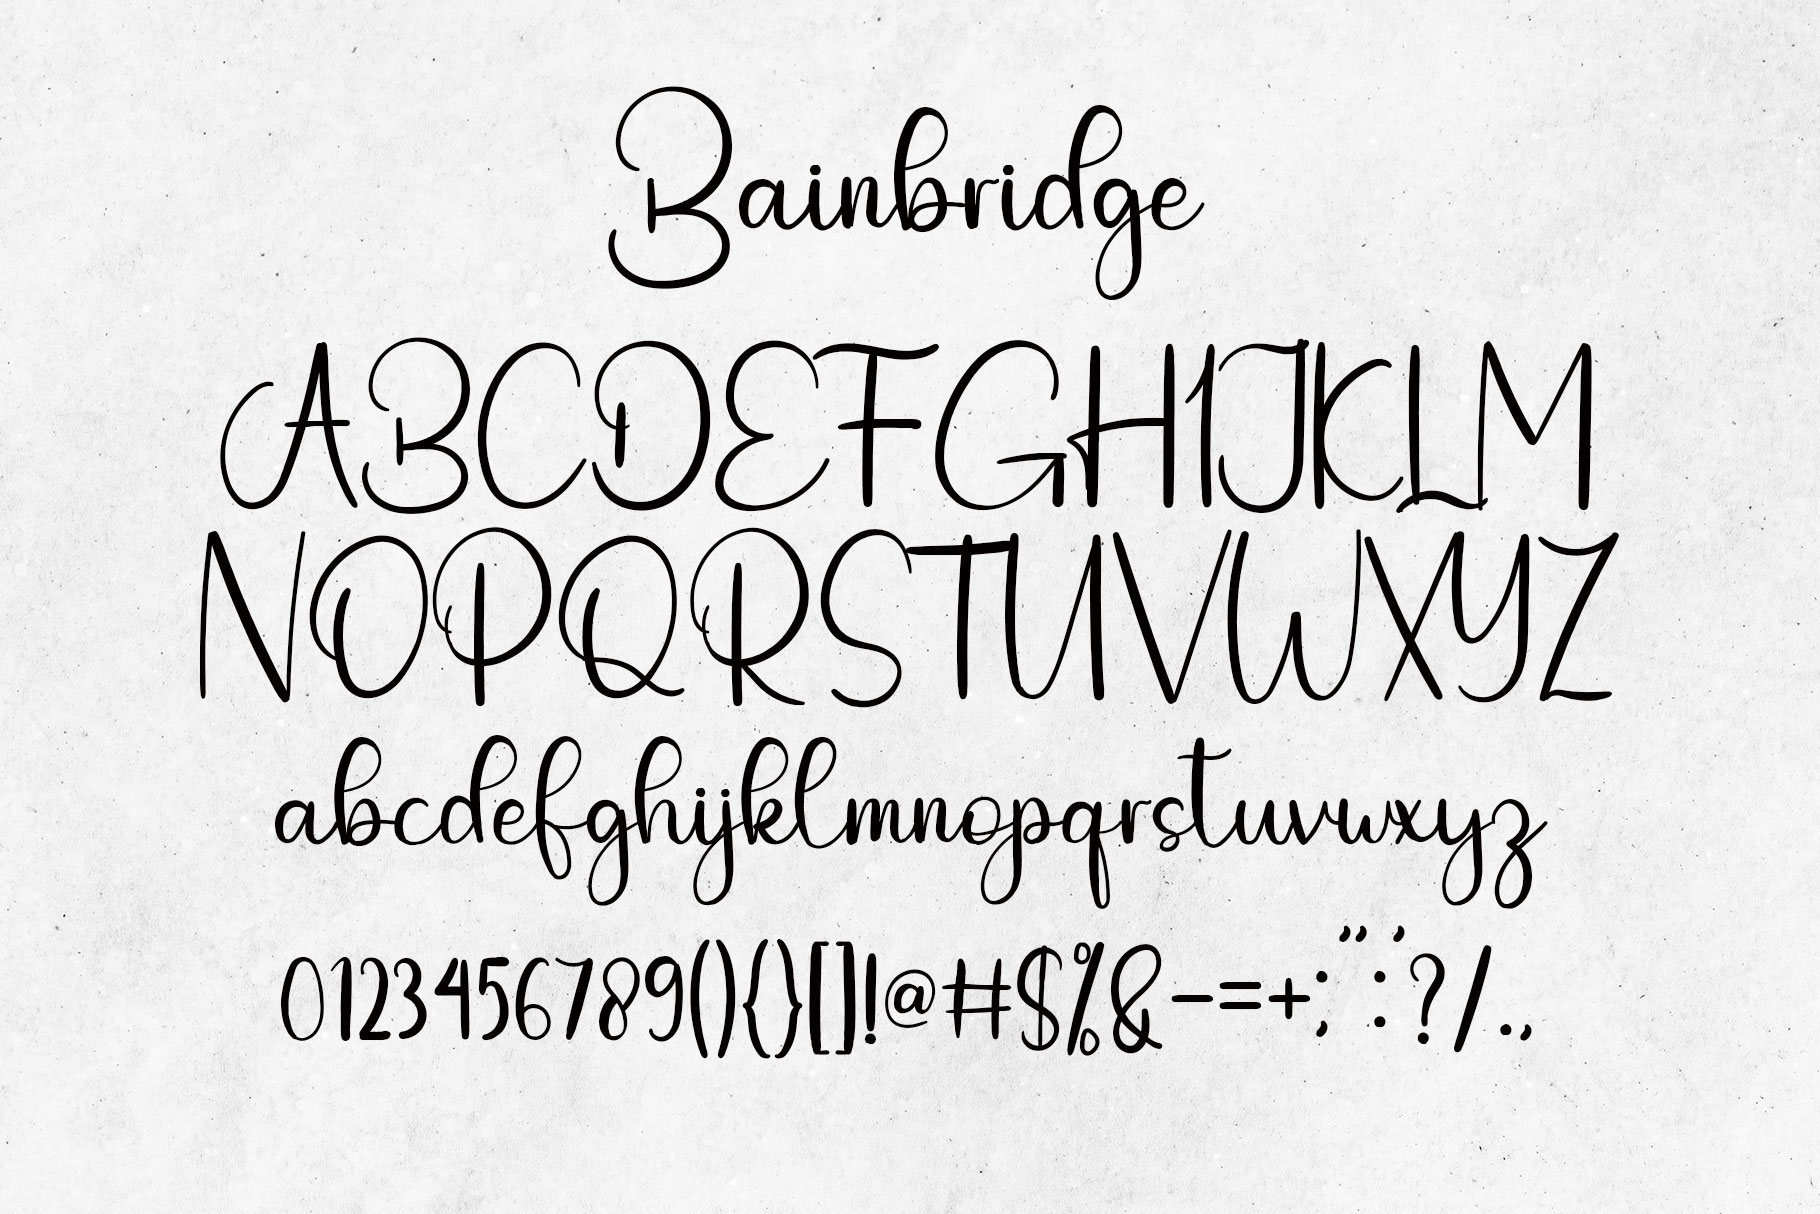 Bainbridge
ABCDEFGHIJKLM
NOPQRSTUVWXYZ
abcdefghijklmnopqrstuvwxyz
0123456789(){}[]!@#$%&-=+;":'?/.,